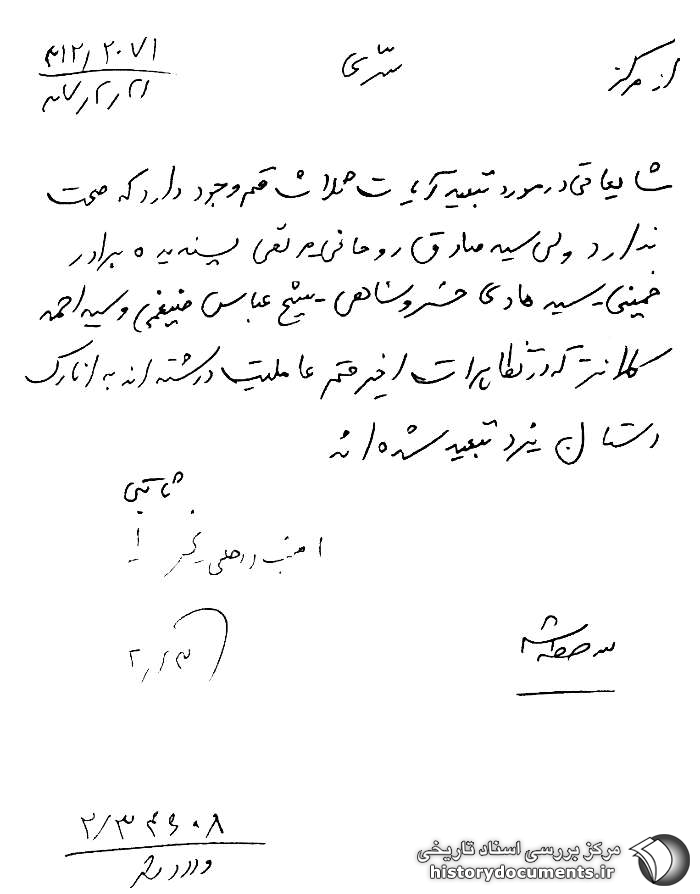 از مرکز
سری
۳۱۲/۲۰۷۱
۵۷/۲/۲۱
شایعاتی در مورد تبعید آیات ثلاث قم وجود دارد که صحت
ندارد ولی سید صادق روحانی مرتضی پسندیده برادر
خمینی - سید هادی خسروشاهی - شیخ عباس ضیغمی و سید احمد
کلانتر که در تظاهرات اخیر قم عاملیت داشته اند به انارک
استان یزد تبعید شده اند
ثابتی
۲/۲۳
۲/۳۴۶۰۸
مرکز بررسی اسناد تاریخی
historydocuments.ir